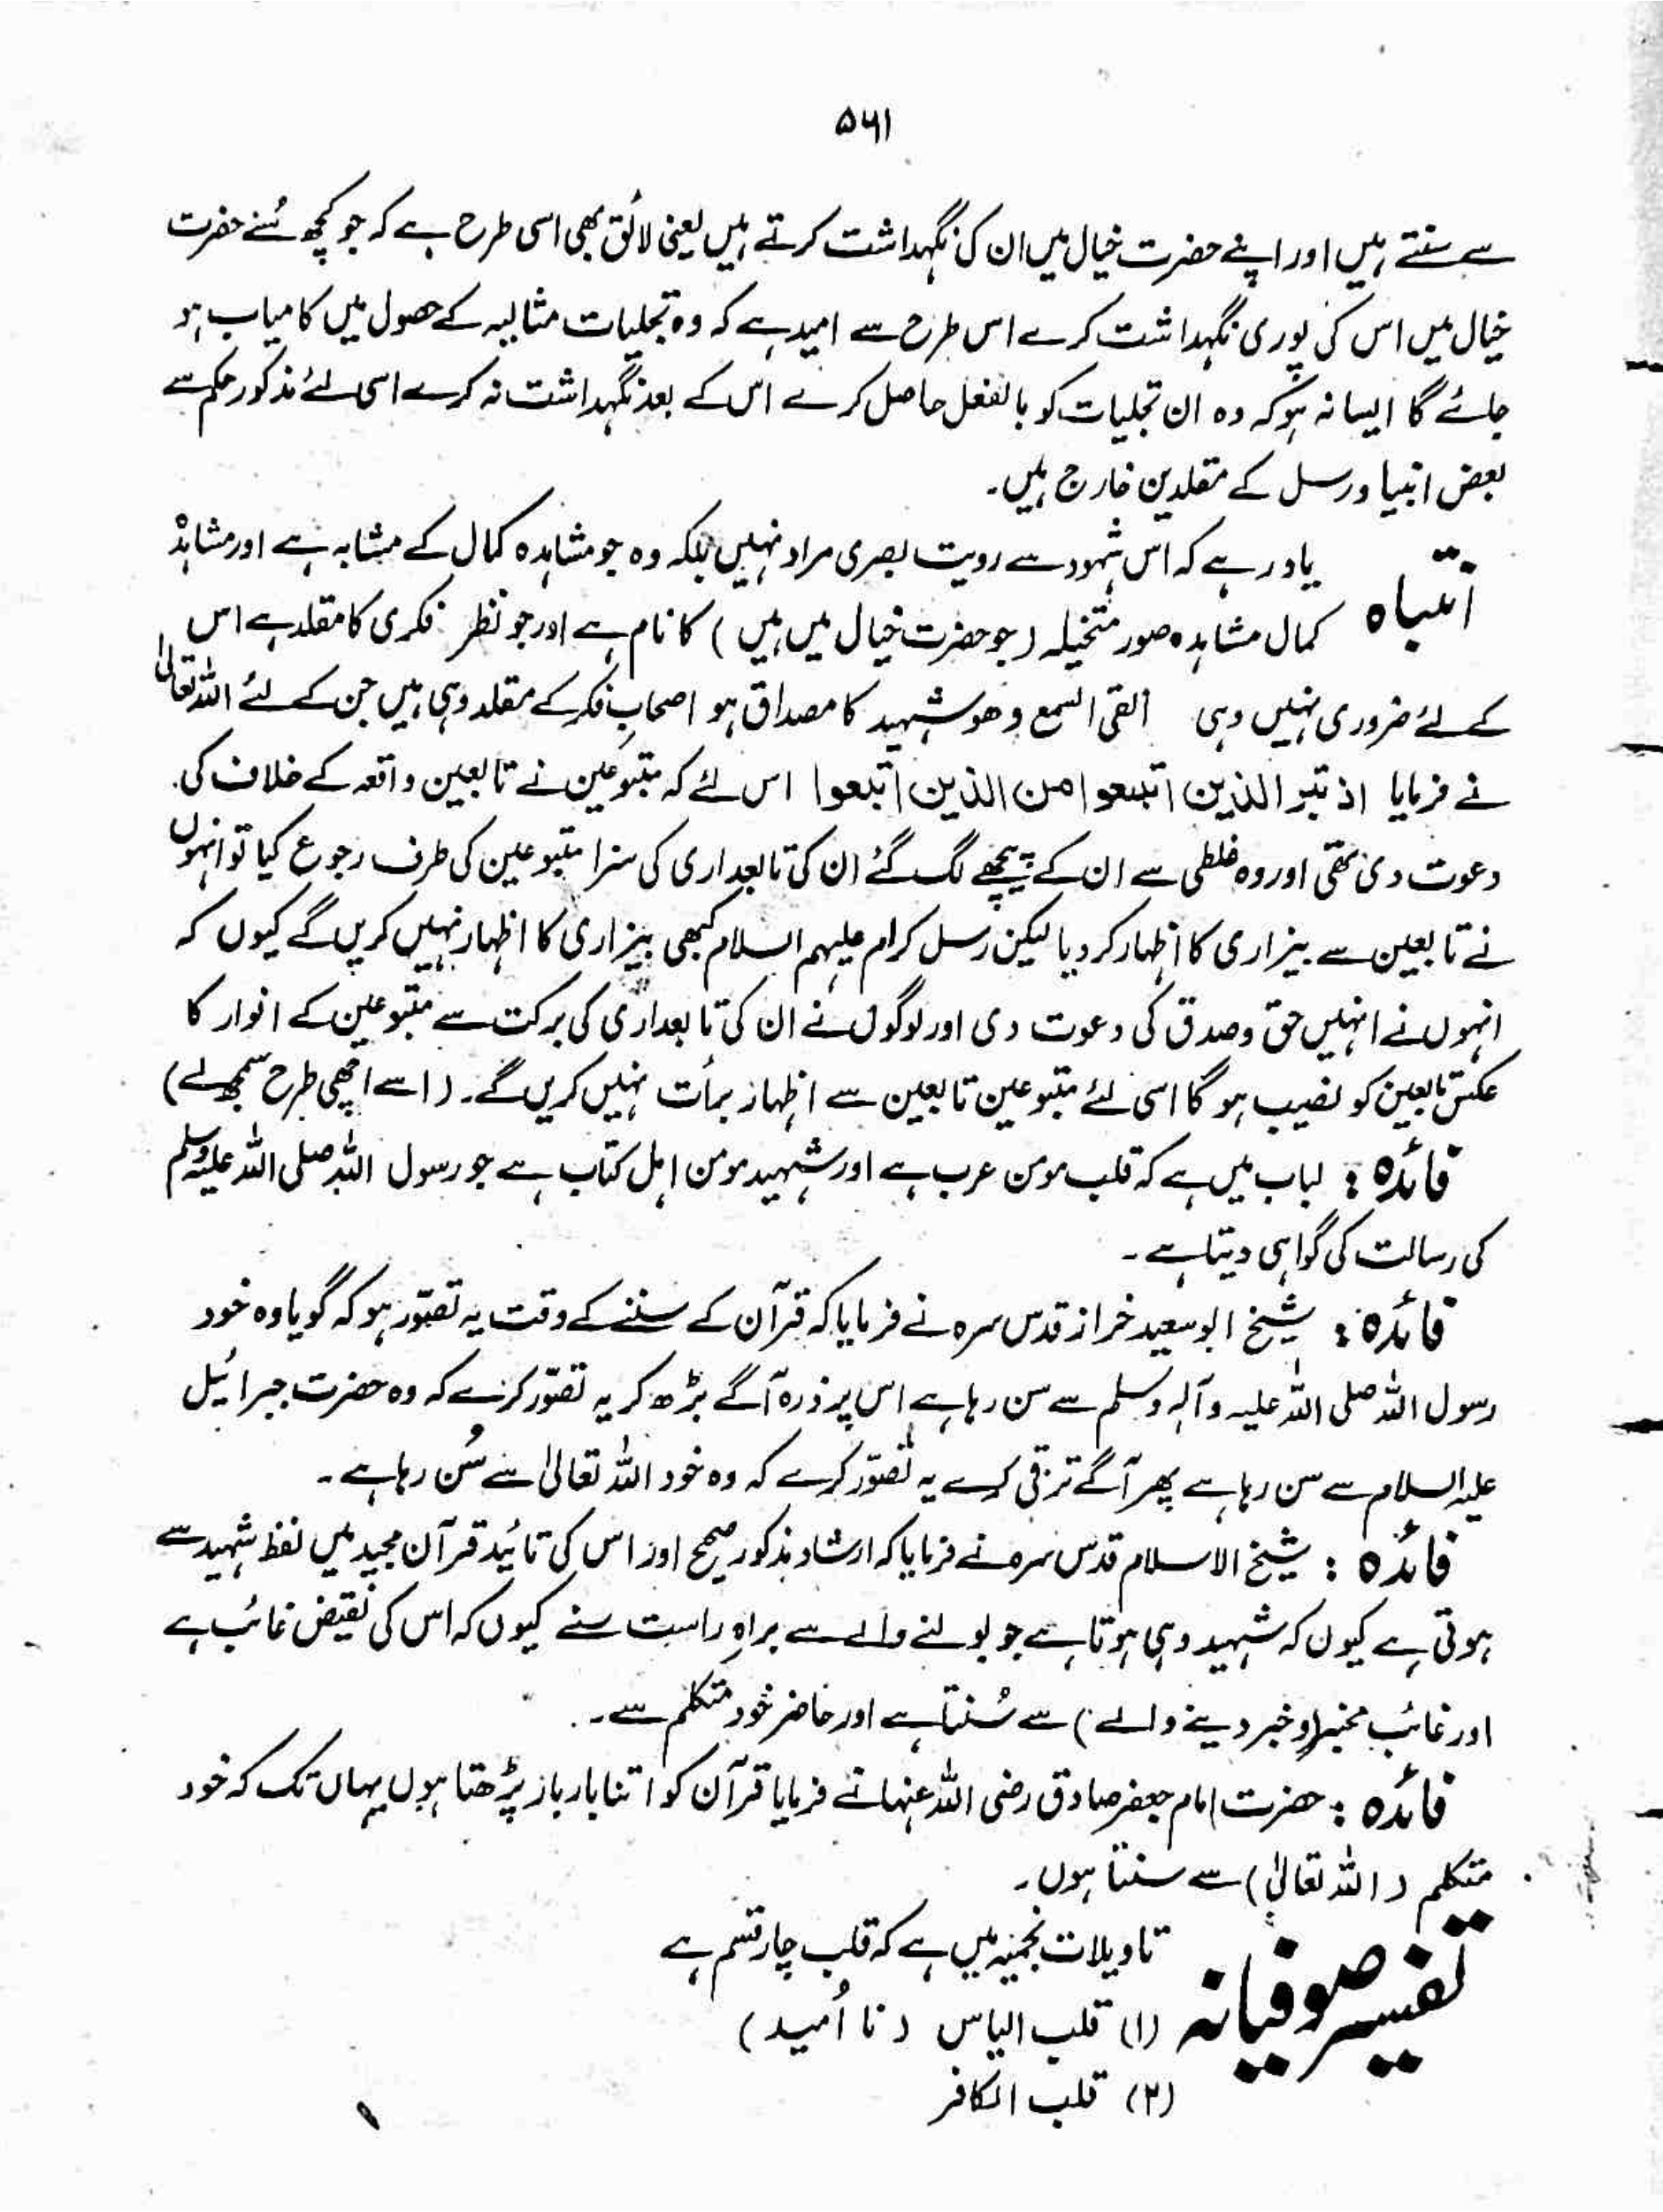 ۵۶۱
سے سنتے ہیں اور اپنے حضرت خیال میں ان کی نگہداشت کرتے ہیں یعنی لائق بھی اسی طرح ہے کہ جو کچھ سُنے حضرت
خیال میں اس کی پوری نگہداشت کرے اس طرح سے امید ہے کہ وہ تجلیات مثالیہ کے حصول میں کامیاب ہو
جائے گا ایسا نہ ہو کہ وہ ان تجلیات کو بالفعل حاصل کرے اس کے بعد نگہداشت نہ کرے اسی لئے مذکور حکم سے
بعض انبیا و رسل کے مقلدین خارج ہیں۔
انتباہ یاد رہے کہ اس شہود سے رویت بصری مراد نہیں بلکہ وہ جو مشاہدہ کمال کے مشابہ ہے اور مشاہدۂ
کمال مشاہدہ صور متخیلہ (جو حضرت خیال میں ہیں) کا نام ہے اور جو نظر فکری کا مقلد ہے اس
کے لئے ضروری نہیں وہی القی السمع وھو شہید کا مصداق ہو اصحابِ فکر کے مقلد وہی ہیں جن کے لئے اللہ تعالیٰ
نے فرمایا اذ تبر الذین اتبعوا من الذین اتبعوا اس لئے کہ متبوعین نے تابعین واقعہ کے خلاف کی
دعوت دی تھی اور وہ غلطی سے ان کے پیچھے لگ گئے ان کی تابعداری کی سزا متبوعین کی طرف رجوع کیا تو انہوں
نے تابعین سے بیزاری کا اظہار کر دیا لیکن رسل کرام علیہم السلام کبھی بیزاری کا اظہار نہیں کریں گے کیوں کہ
انہوں نے انہیں حق و صدق کی دعوت دی اور لوگوں نے ان کی تابعداری کی برکت سے متبوعین کے انوار کا
عکس تابعین کو نصیب ہو گا اسی لئے متبوعین تابعین سے اظہار برأت نہیں کریں گے۔ (اسے اچھی طرح سمجھ لے)
فائدہ : لباب میں ہے کہ قلب مومن عرب ہے اور شہید مومن اہل کتاب ہے جو رسول اللہ صلی اللہ علیہ وسلم
کی رسالت کی گواہی دیتا ہے۔
فائدہ : شیخ ابو سعید خراز قدس سرہ نے فرمایا کہ قرآن کے سننے کے وقت یہ تصوّر ہو کہ گویا وہ خود
رسول اللہ صلی اللہ علیہ وآلہ وسلم سے سن رہا ہے اس پر ذرہ آگے بڑھ کر یہ تصوّر کرے کہ وہ حضرت جبرائیل
علیہ السلام سے سن رہا ہے پھر آگے ترقی کرے یہ تصوّر کرے کہ وہ خود اللہ تعالیٰ سے سُن رہا ہے۔
فائدہ : شیخ الاسلام قدس سرہ نے فرمایا کہ ارشاد مذکور صحیح اور اس کی تائید قرآن مجید میں لفظ شہید سے
ہوتی ہے کیوں کہ شہید وہی ہوتا ہے جو بولنے والے سے براہِ راست سنے کیوں کہ اس کی نقیض غائب ہے
اور غائب مخبر (خبر دینے والے) سے سُنتا ہے اور حاضر خود متکلم سے۔
فائدہ : حضرت امام جعفر صادق رضی اللہ عنہا نے فرمایا قرآن کو اتنا بار بار پڑھتا ہوں یہاں تک کہ خود
متکلم (اللہ تعالیٰ) سے سنتا ہوں۔
تفسیر صوفیانہ تاویلات نجمیہ میں ہے کہ قلب چار قسم ہے
(۱) قلب الیاس (نا اُمید)
(۲) قلب الکافر